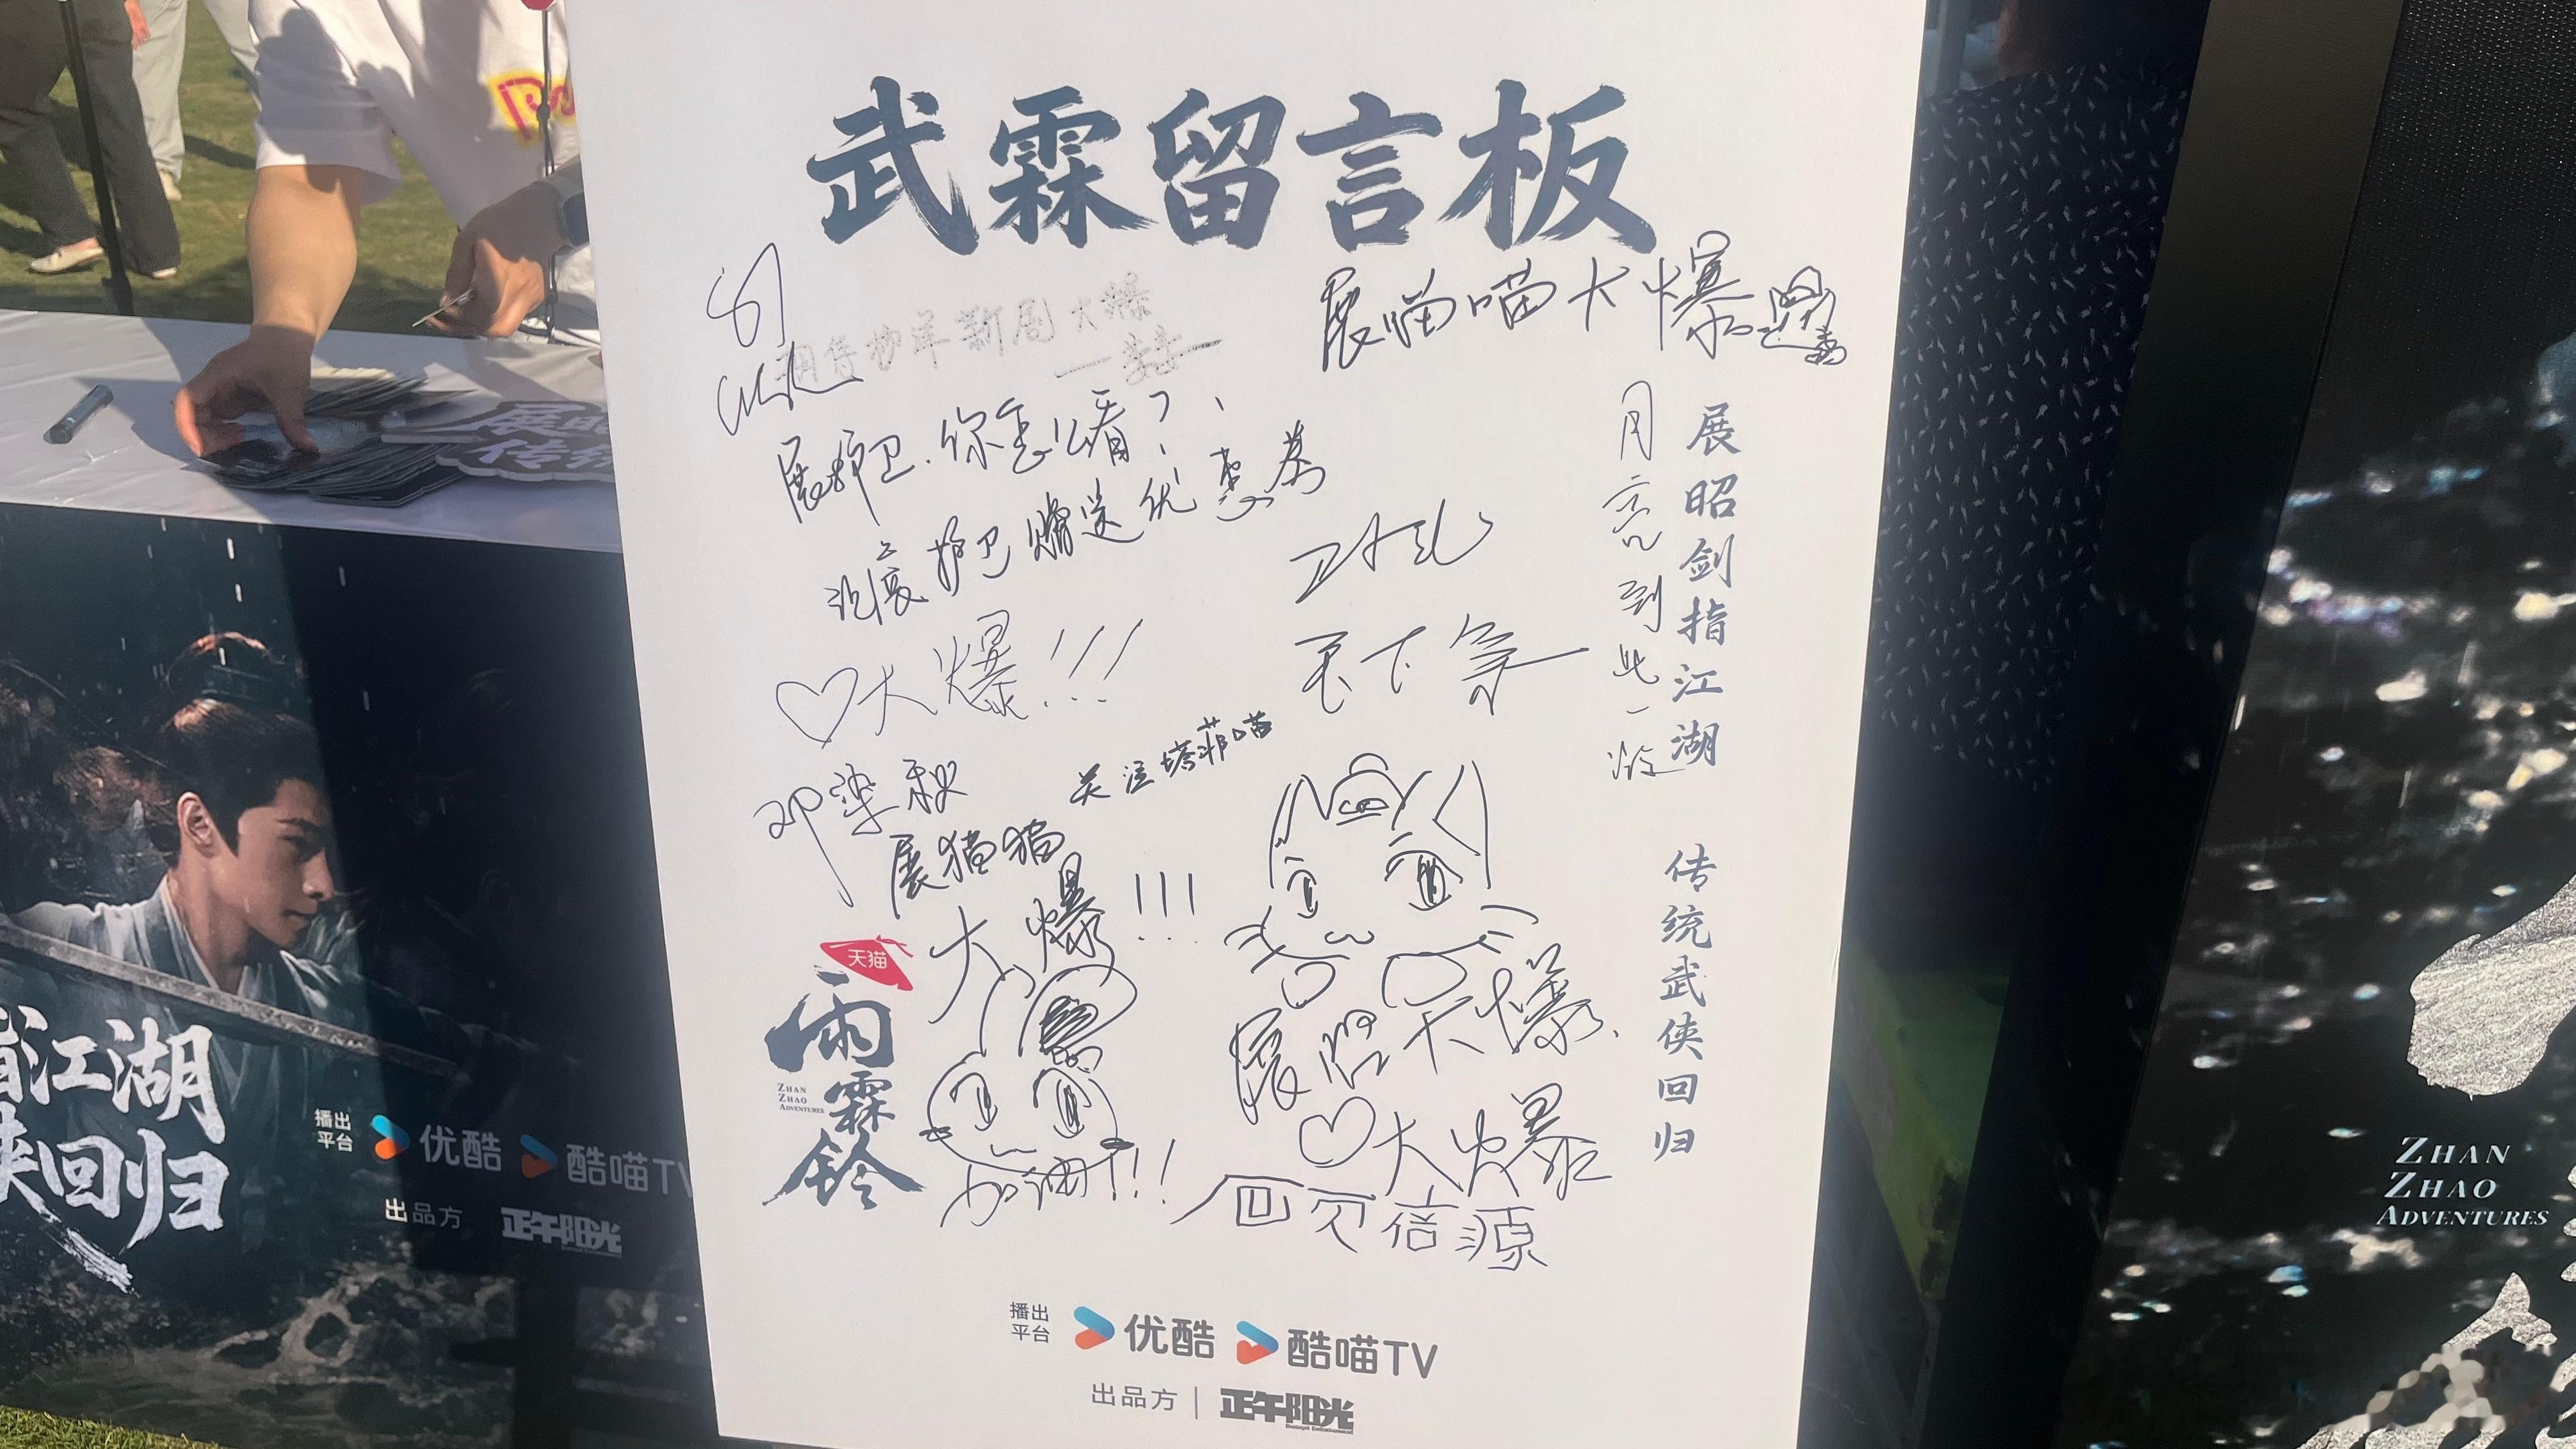 武霖留言板
展喵喵大爆
新剧大爆
展护卫.你怎么看?
护卫赠送优惠券
大爆!!!
天下第一
月亮到此一游
展昭剑指江湖
传统武侠回归
关注塔菲喵
邓染秋
展猫猫
大爆!!!
天猫
雨霖铃
ZHAN
ZHAO
ADVENTURES
加油!!!
展昭大爆
大爆
信源
播出
平台
优酷
酷喵TV
出品方
正午阳光
江湖
侠回归
播出
平台
优酷
酷喵TV
出品方
正午阳光
ZHAN
ZHAO
ADVENTURES